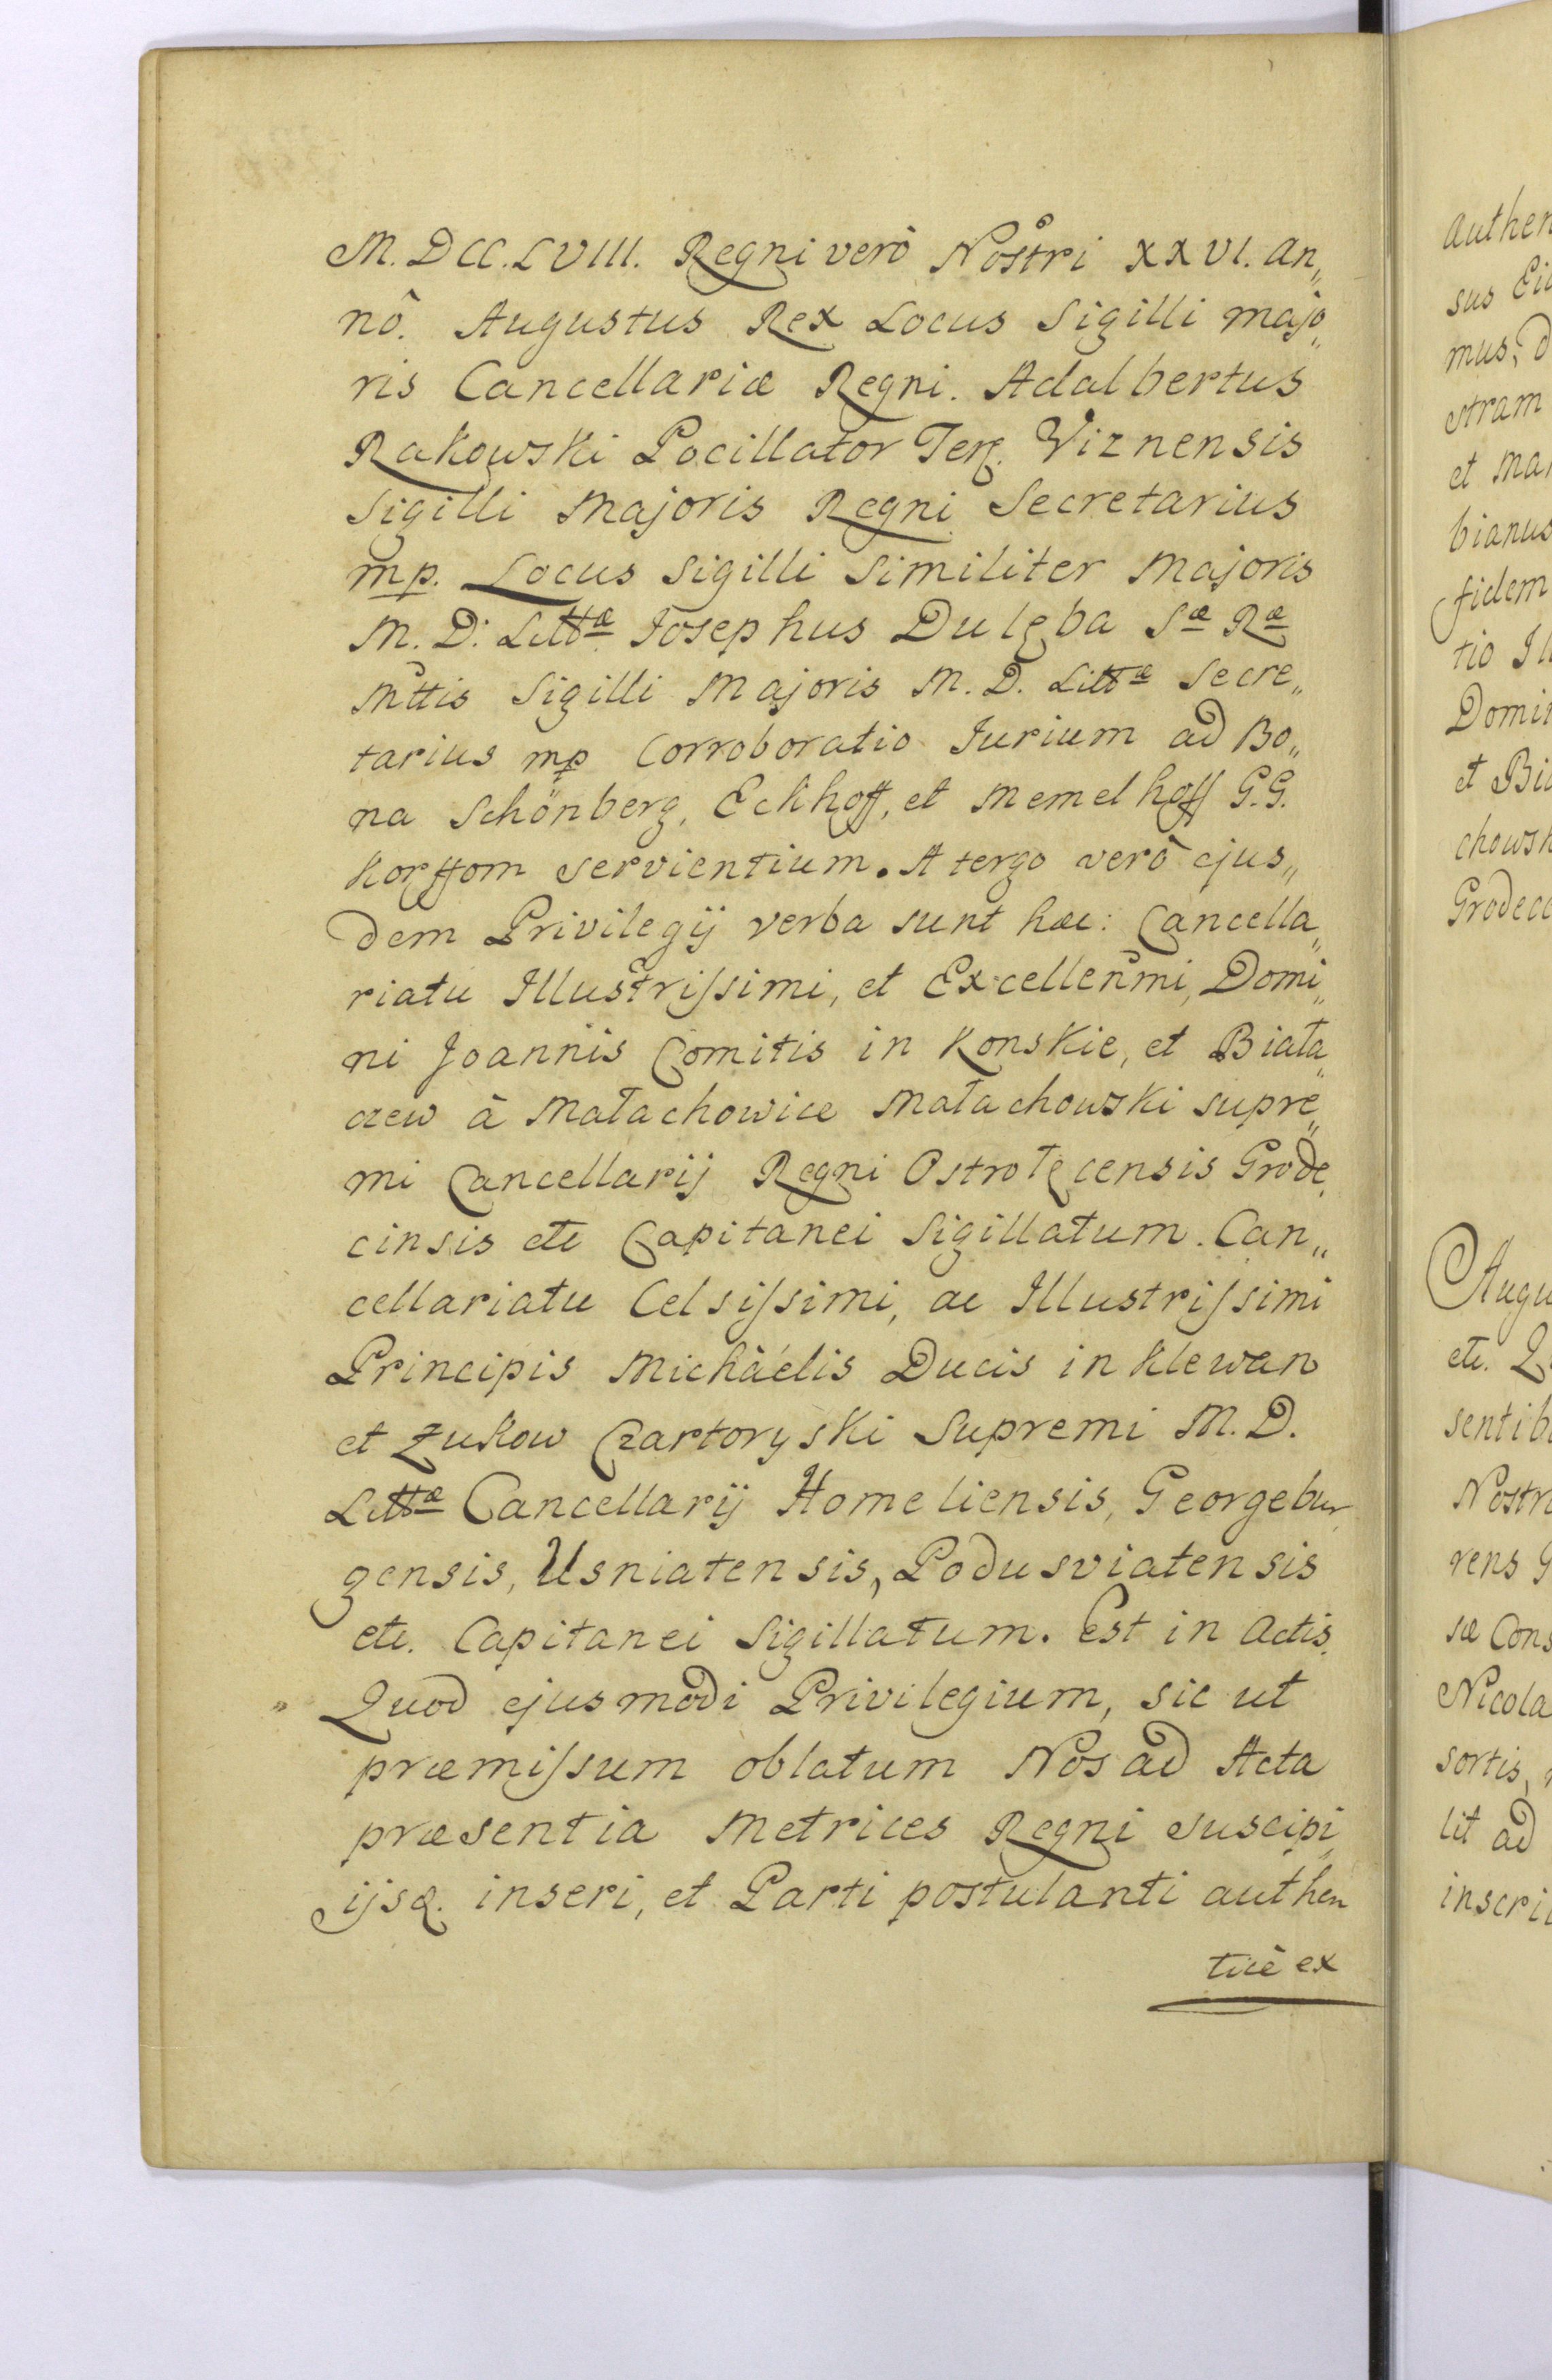 M.DCC.LVIII. Regni verò Nostri XXVI. An„
nô. Augustus Rex Locus Sigilli majo„
ris Cancellariæ Regni. Adalbertus
Rakowski Pocillator Terr. Viznensis
Sigilli Majoris Regni Secretarius
mp. Locus Sigilli Similiter Majoris
M. D: Littæ Josephus Dulęba Sæ Ræ
Mttis Sigilli Majoris M. D. Littæ Secre„
tarius mp Corroboratio Jurium ad Bo„
na Schönberg, Eckhoff, et Memelhoff G.G.
Korffom servientium. A tergo verò ejus„
dem Privilegij verba sunt hæc: Cancella„
riatu Illustrissimi, et Excellenmi, Domi„
ni Joannis Comitis in Konskie, et Biała„
czew à Małachowice Małachowski supre„
mi Cancellarij Regni Ostrołęcensis Grode„
cinsis etc Capitanei Sigillatum. Can„
cellariatu Celsissimi, ac Illustrissimi
Principis Michaélis Ducis in Klewan
et Zukow Czartoryski Supremi M. D.
Littæ Cancellarij Homeliensis, Georgebur„
gensis, Usniatensis, Podusviatensis
etc. Capitanei Sigillatum. Est in Actis.
Quod ejusmodi Privilegium, sic ut
præmissum oblatum Nos ad Acta
præsentia Metrices Regni suscipi„
ijsq. inseri, et Parti postulanti authen
ticè ex
authen
sus
mus,
stram
et
bianus
fidem
tio
Domin
et
chowsk
Grodec
Augu
etc.
sentib
Nostr
rens
sæ Cons
Nicola
sortis,
lit ad
inscri